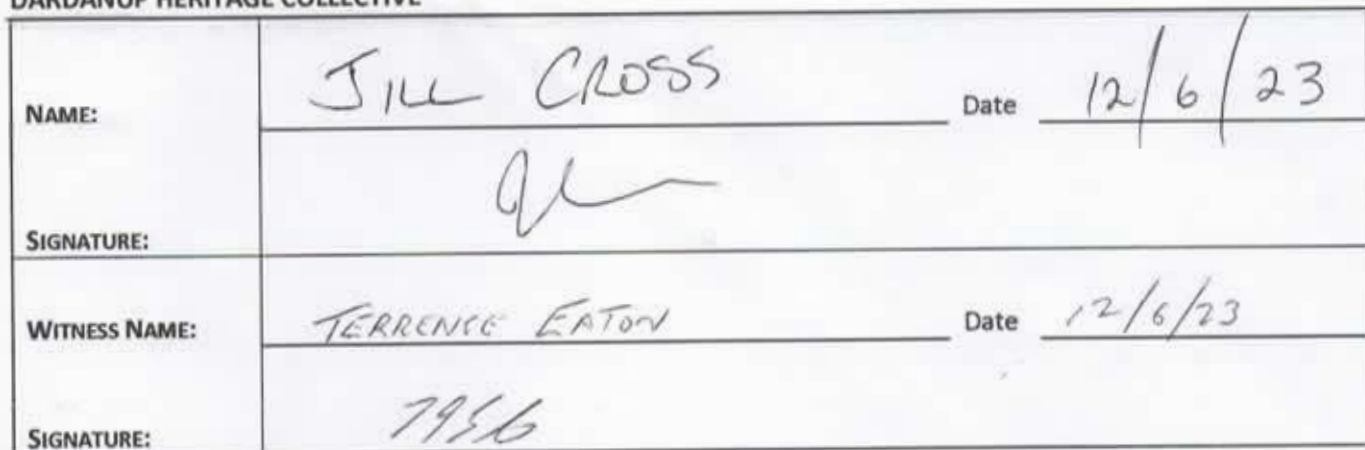 DARDANUP HERITAGE COLLECTIVE
NAME: JILL CROSS Date 12/6/23
SIGNATURE:
WITNESS NAME: TERRENCE EATON Date 12/6/23
SIGNATURE: